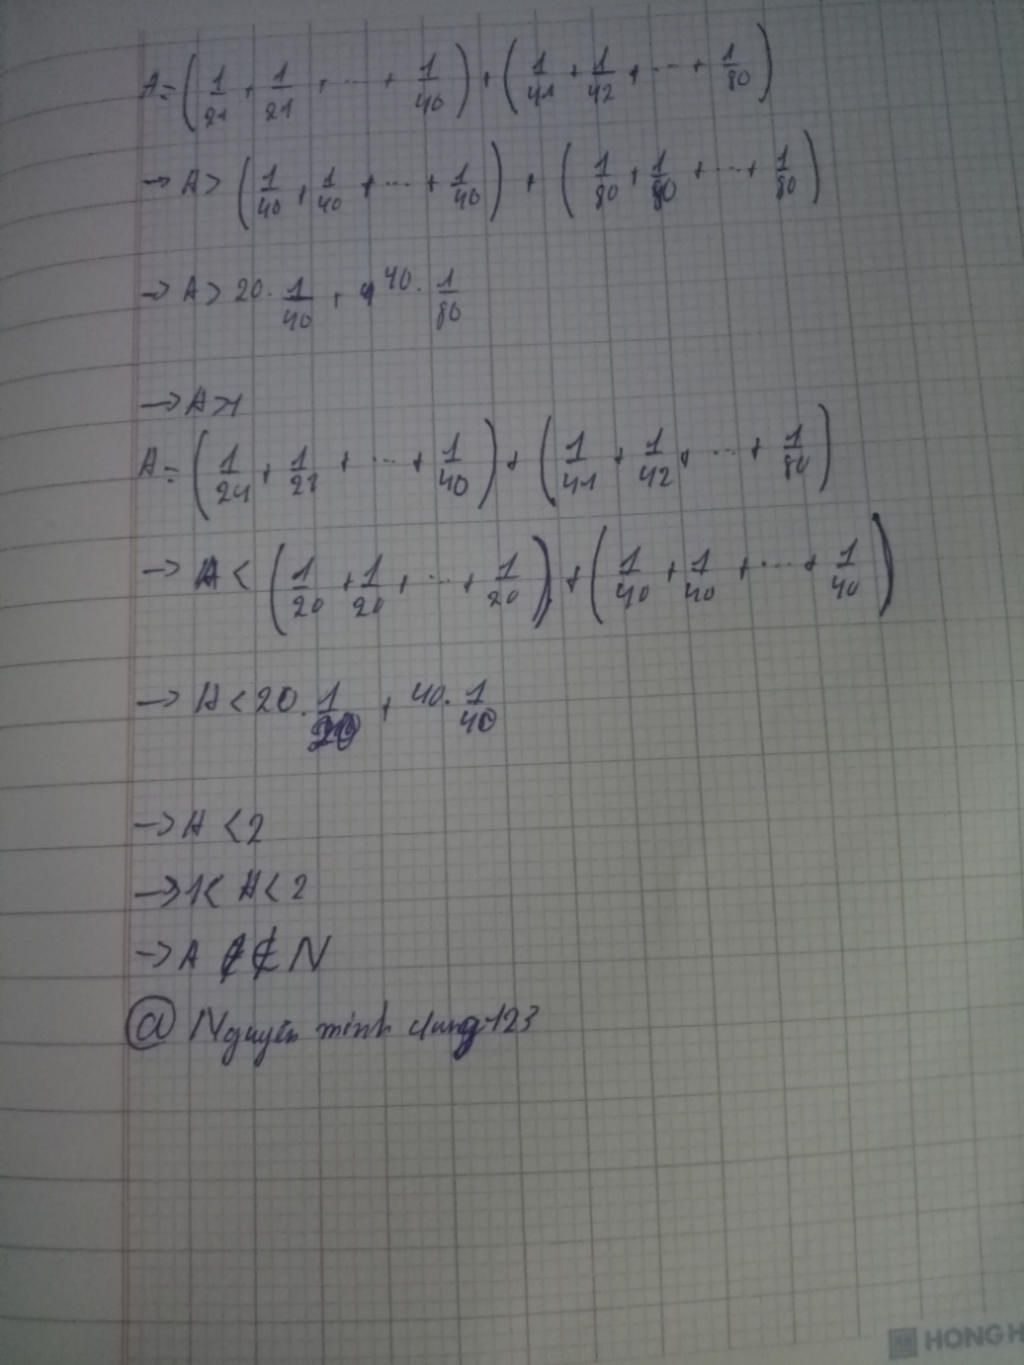 A = (1/21 + 1/21 + ... + 1/40) + (1/41 + 1/42 + ... + 1/80)
→ A > (1/40 + 1/40 + ... + 1/40) + (1/80 + 1/80 + ... + 1/80)
→ A > 20 . 1/40 + 40 . 1/80
→ A > 1
A = (1/21 + 1/22 + ... + 1/40) + (1/41 + 1/42 + ... + 1/80)
→ A < (1/20 + 1/20 + ... + 1/20) + (1/40 + 1/40 + ... + 1/40)
→ A < 20 . 1/20 + 40 . 1/40
→ A < 2
→ 1 < A < 2
→ A ∉ N
@ Nguyễn minh dung123
HONG H